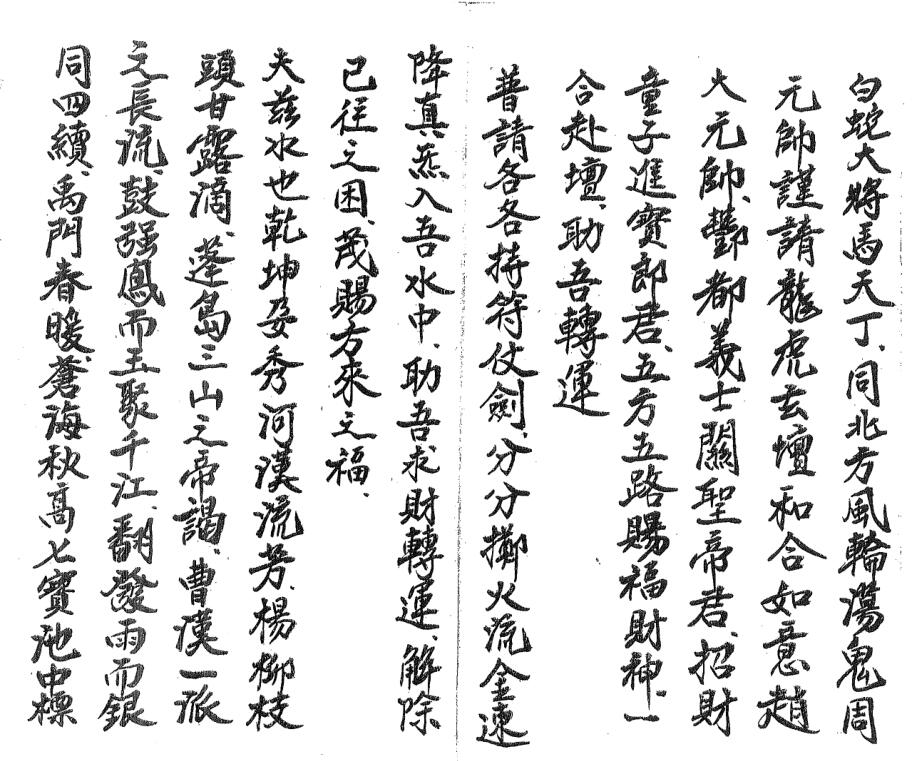 白蛇大將馬天丁、同北方風輪蕩鬼周
元帥謹請龍虎玄壇和合如意趙
大元帥、酆都義士關聖帝君、招財
童子進寶郎君、五方五路賜福財神、一
合赴壇、助吾轉運
普請各各持符仗劍、分分擲火流金速
降真炁入吾水中、助吾求財轉運、解除
已往之困、茂賜方來之福、
夫茲水也乾坤孕秀河漢流芳、楊柳枝
頭甘露滴、蓬島三山之帝謁、曹漢一派
之長流、鼓强鳳而玉聚千江、翻潑雨而銀
同四續、禹門春暖、蒼海秋高七寶池中標